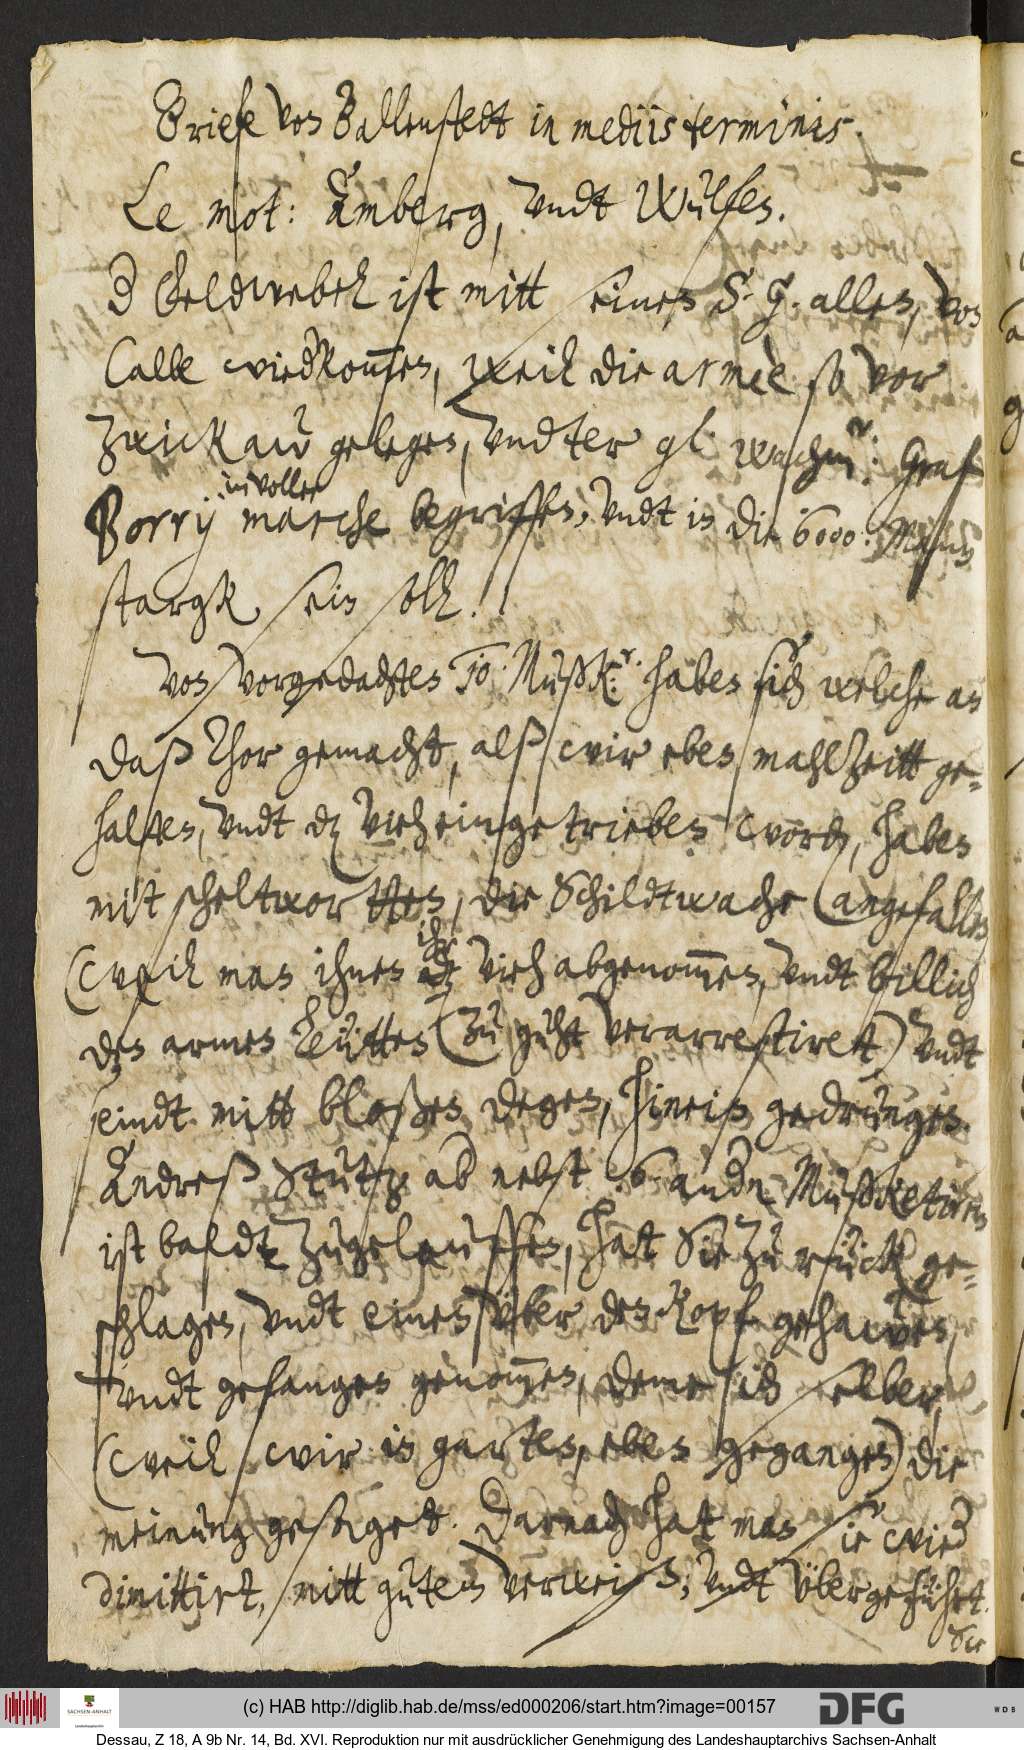 Briefe von Ballenstedt in mediis terminis.
Le mot: Amberg, undt Wülfen.
D Geldwebel ist mitt seinen S. G. allen, von
Calbe wiedkommen, weil die armée so vor
Zwickaw gelegen, undter gl: wachm.r: Graf
Borry in voller marche begriffen, undt in die 6000: Mann
stargk sein soll.
Von vorgedachten 10: Mußk.r: haben sich welche an
daß Thor gemacht, alß wir eben mahlzeitt ge-
halten, undt dz Vieh eingetrieben word, haben
mit scheltwortten, die Schildtwache angefallen
(weil man ihnen ihr Vieh abgenommen, undt billich
den armen Leütten zu guht verarrestiret) undt
seindt mitt bloßen degen, hinein gedrungen.
Andreß Stutz ab nebst 6 andn Mußketirern
ist baldt zugelauffen, hat Sie zu rück ge-
schlagen, undt einen über den Kopf gehawen,
undt gefangen genommen, deme ich selber,
(weil wir in garten eben gegangen) die
meinung gesaget. Darnach hat man sie wied
dimittirt, mitt gutem verweiß, undt übergeführt.
Die
(c) HAB http://diglib.hab.de/mss/ed000206/start.htm?image=00157
SACHSEN-ANHALT
DFG
WDB
Dessau, Z 18, A 9b Nr. 14, Bd. XVI. Reproduktion nur mit ausdrücklicher Genehmigung des Landeshauptarchivs Sachsen-Anhalt